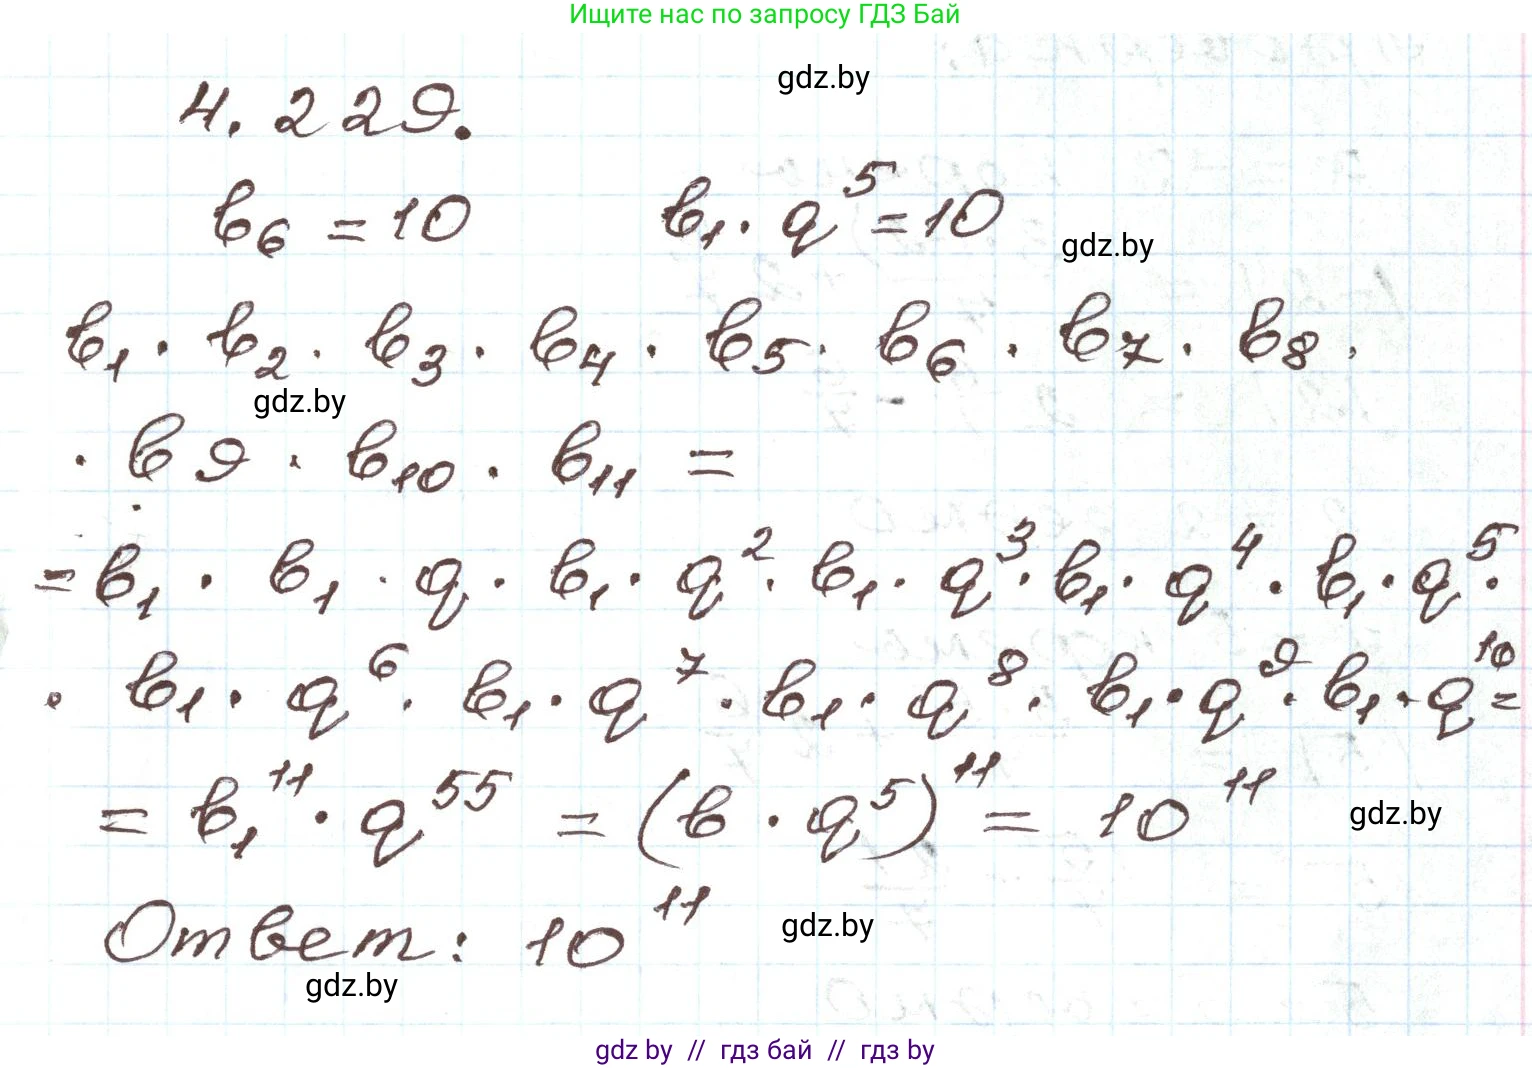 Ищите нас по запросу ГДЗ Бай
gdz.by
4.229.
b₆ = 10 b₁ · q⁵ = 10
gdz.by
b₁ · b₂ · b₃ · b₄ · b₅ · b₆ · b₇ · b₈ ·
gdz.by
· b₉ · b₁₀ · b₁₁ =
= b₁ · b₁ · q · b₁ · q² · b₁ · q³ · b₁ · q⁴ · b₁ · q⁵ ·
· b₁ · q⁶ · b₁ · q⁷ · b₁ · q⁸ · b₁ · q⁹ · b₁ · q¹⁰ =
= b₁¹¹ · q⁵⁵ = (b · q⁵)¹¹ = 10¹¹
gdz.by
Ответ: 10¹¹
gdz.by
gdz.by
gdz by // гдз бай // гдз by